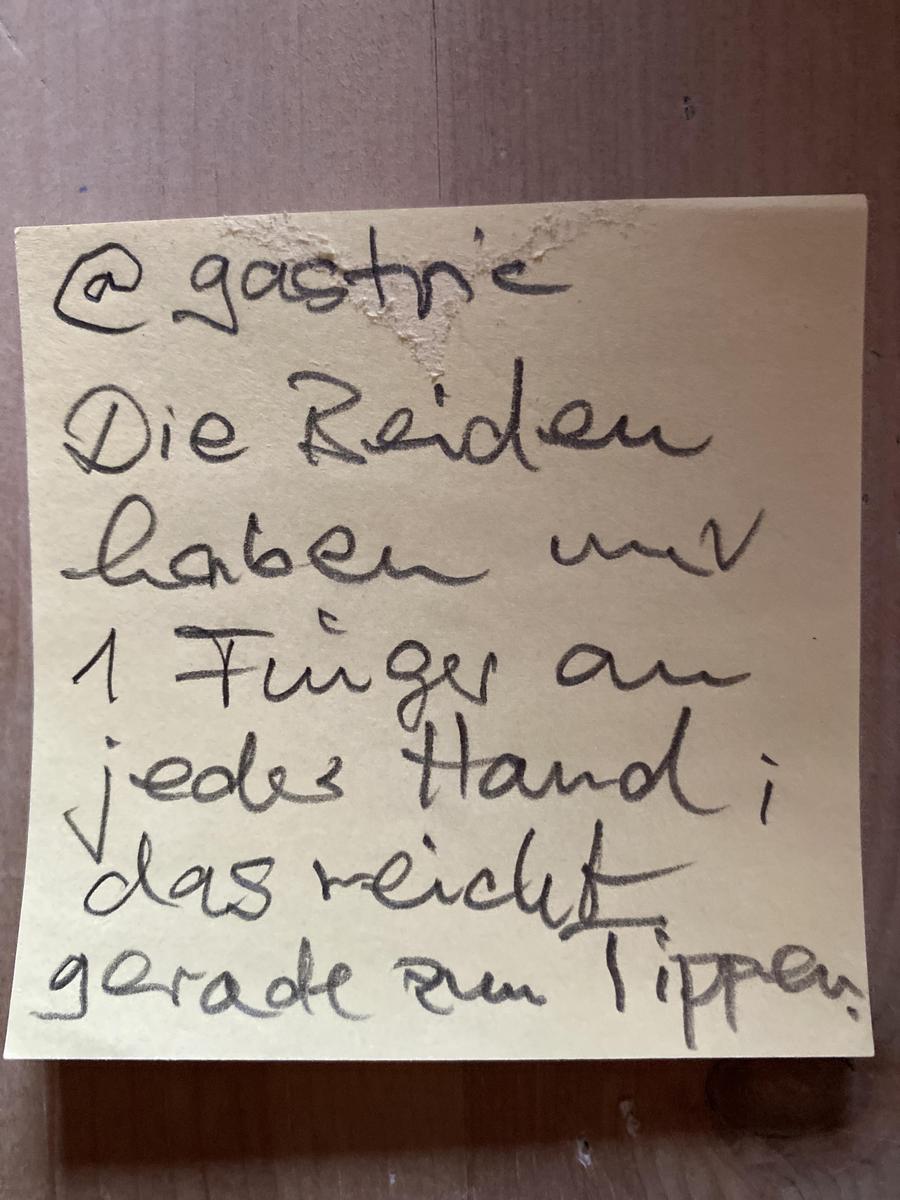 @gastric
Die Beiden
haben nur
1 Finger an
jeder Hand;
das reicht
gerade zum Tippen.